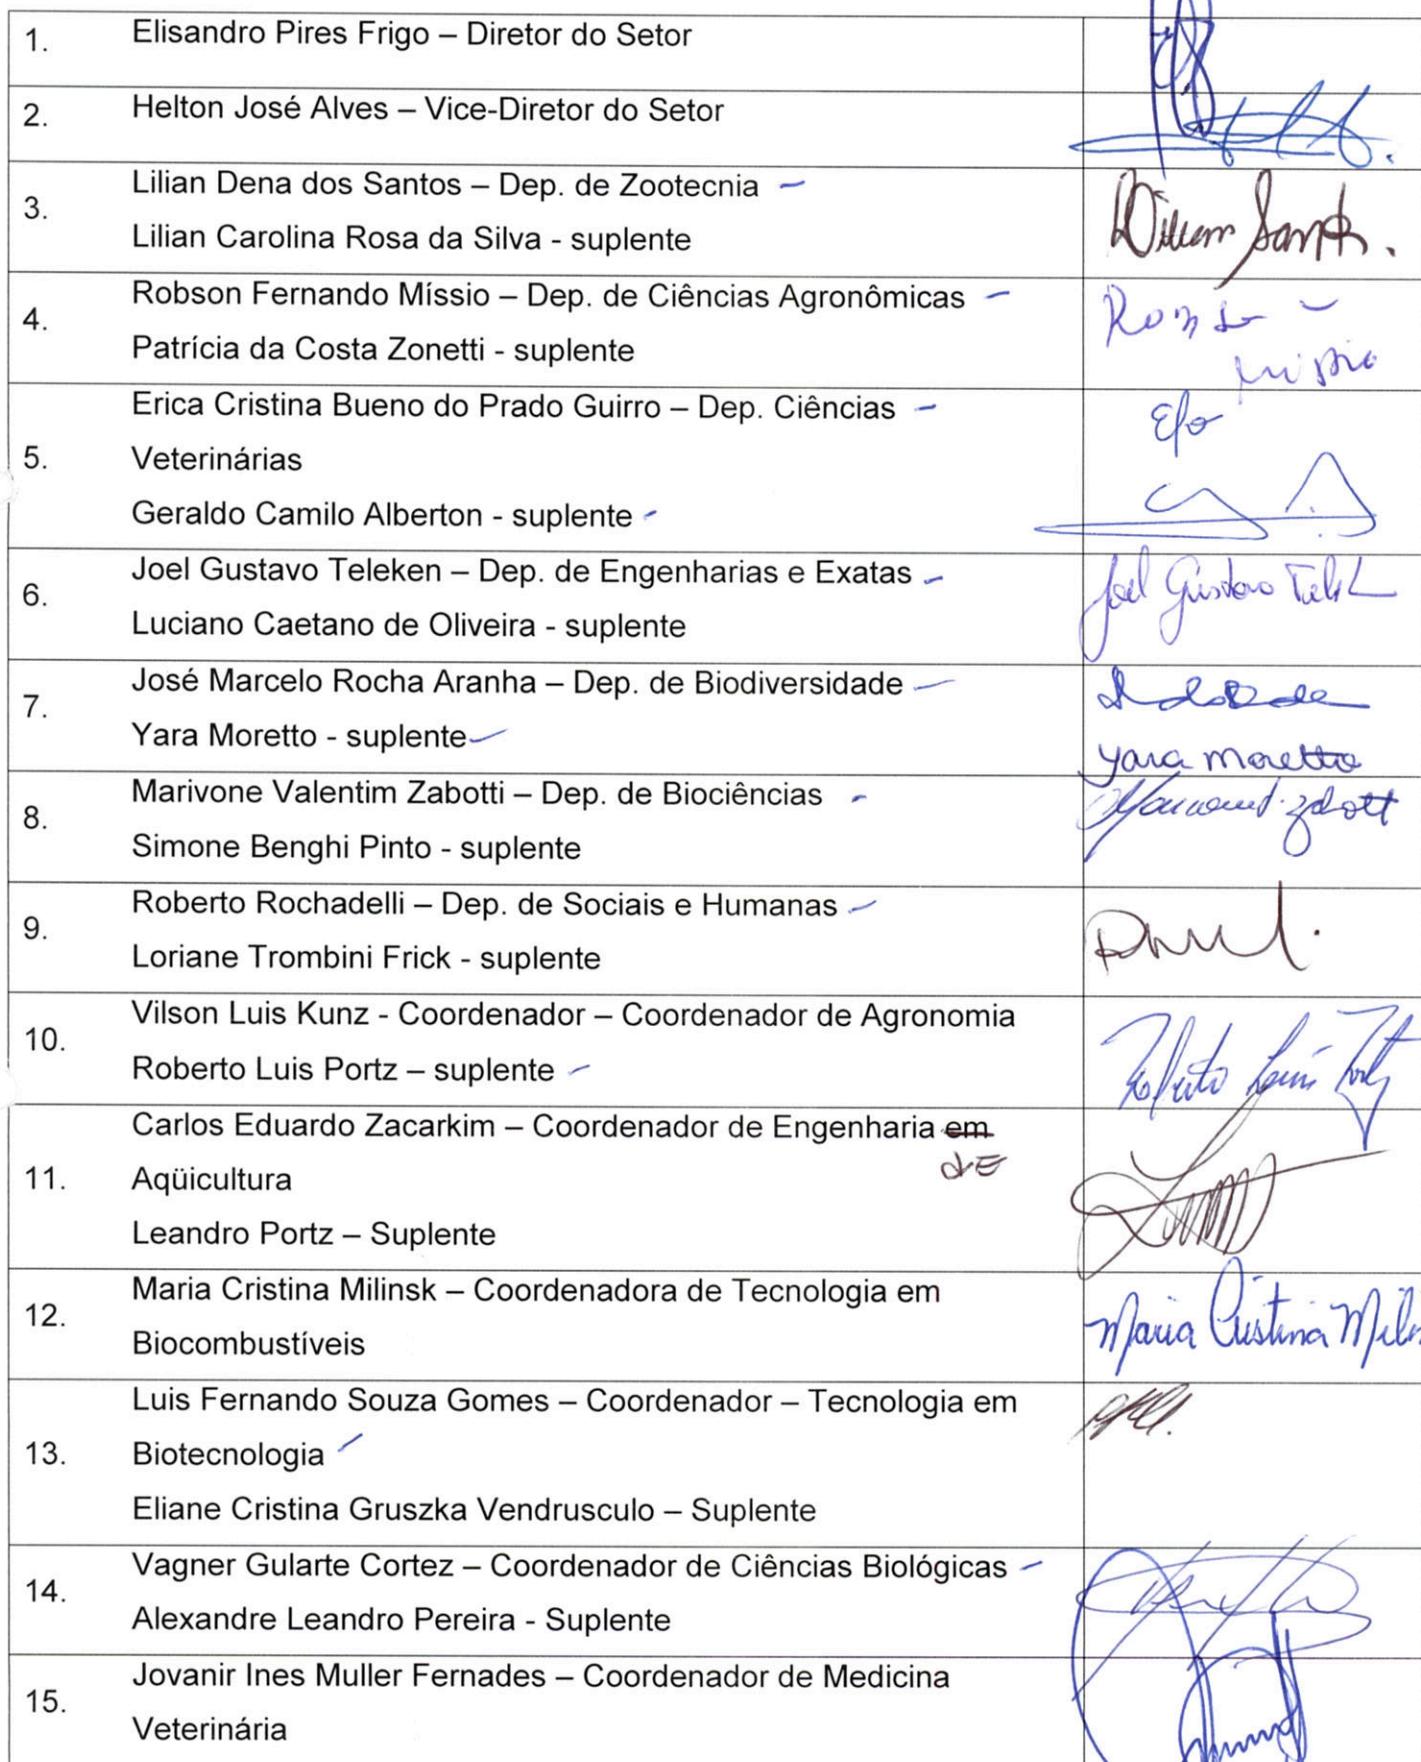 1. Elisandro Pires Frigo – Diretor do Setor
2. Helton José Alves – Vice-Diretor do Setor
3. Lilian Dena dos Santos – Dep. de Zootecnia
Lilian Carolina Rosa da Silva - suplente
4. Robson Fernando Míssio – Dep. de Ciências Agronômicas
Patrícia da Costa Zonetti - suplente
Missio
Erica Cristina Bueno do Prado Guirro – Dep. Ciências
5. Veterinárias
Geraldo Camilo Alberton - suplente
6. Joel Gustavo Teleken – Dep. de Engenharias e Exatas
Joel Gustavo
Luciano Caetano de Oliveira - suplente
7. José Marcelo Rocha Aranha – Dep. de Biodiversidade
Yara Moretto - suplente
Yara Moretto
8. Marivone Valentim Zabotti – Dep. de Biociências
Simone Benghi Pinto - suplente
9. Roberto Rochadelli – Dep. de Sociais e Humanas
Loriane Trombini Frick - suplente
10. Vilson Luis Kunz - Coordenador – Coordenador de Agronomia
Roberto Luis Portz – suplente
Roberto Luis Portz
Carlos Eduardo Zacarkim – Coordenador de Engenharia em
DE
11. Aqüicultura
Leandro Portz – Suplente
12. Maria Cristina Milinsk – Coordenadora de Tecnologia em
Biocombustíveis
Maria Cristina Mil
Luis Fernando Souza Gomes – Coordenador – Tecnologia em
13. Biotecnologia
Eliane Cristina Gruszka Vendrusculo – Suplente
14. Vagner Gularte Cortez – Coordenador de Ciências Biológicas
Alexandre Leandro Pereira - Suplente
15. Jovanir Ines Muller Fernades – Coordenador de Medicina
Veterinária